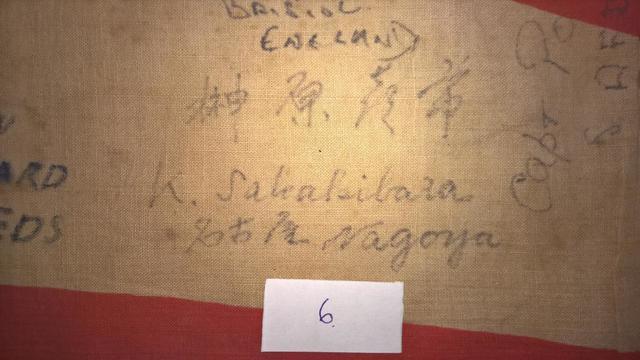 BRISTOL
ENGLAND
榊原
K. Sakakibara
名古屋 Nagoya
ARD
EDS
Capt
6.